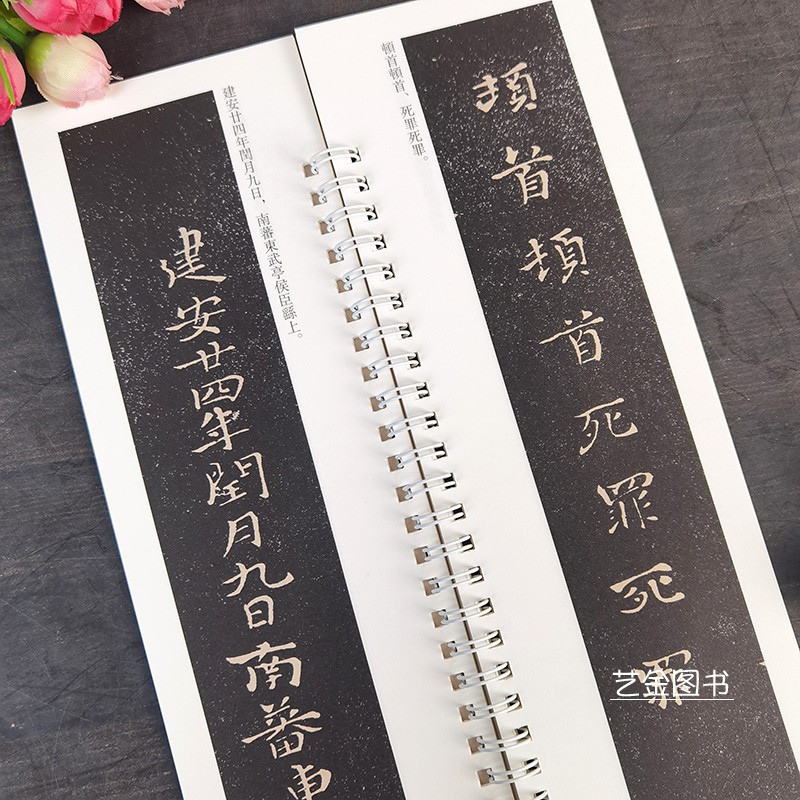 頓首頓首死罪死罪
頓首頓首、死罪死罪。
建安廿四年閏月九日南蕃東
建安廿四年閏月九日，南蕃東武亭侯臣繇上。
艺金图书